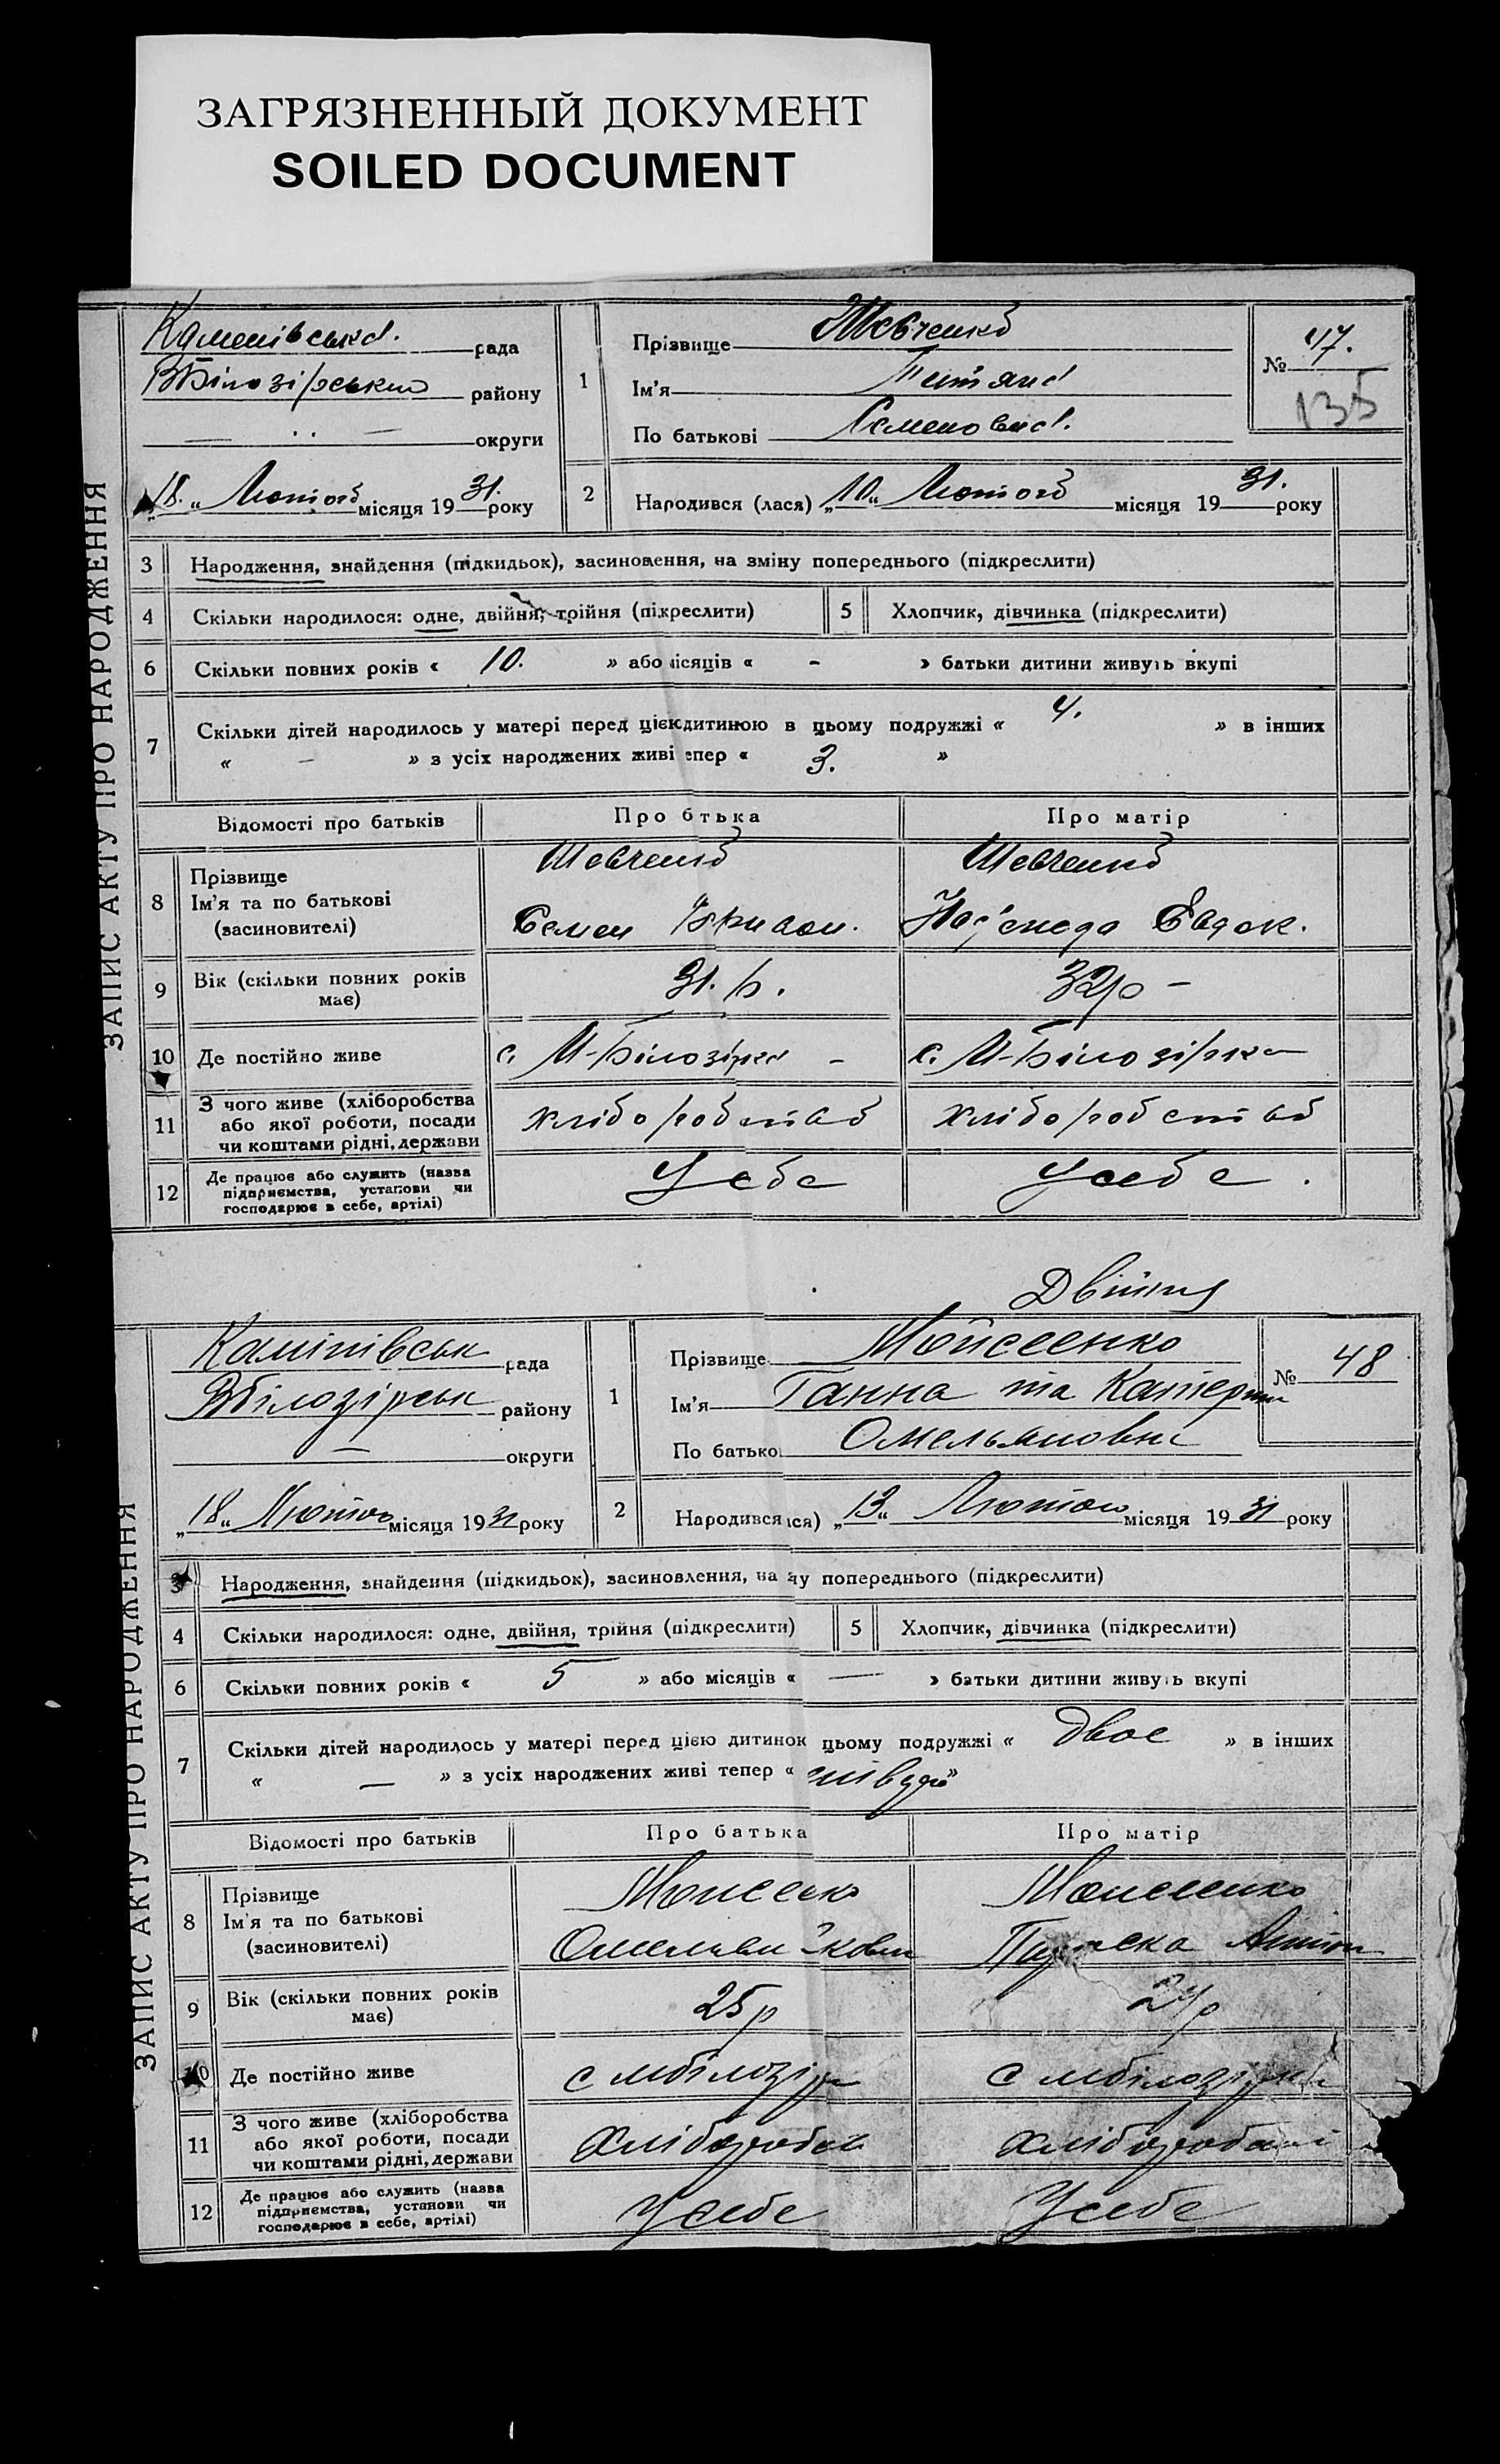 ЗАГРЯЗНЕННЫЙ ДОКУМЕНТ
SOILED DOCUMENT
ЗАПИС АКТУ ПРО НАРОДЖЕННЯ
Каменівська. рада
ВБілозірського району
— . . — округи
„18.“ Лютого місяця 1931. року
1
Прізвище Шевченко
Ім'я Тетяна
По батькові Семеновна.
№ 47.
135
2
Народився (лася) „10“ Лютого місяця 1931. року
3 Народження, знайдення (підкидьок), засиновлення, на зміну попереднього (підкреслити)
4 Скільки народилося: одне, двійня, трійня (пікреслити)
5 Хлопчик, дівчинка (підкреслити)
6 Скільки повних років « 10. » або ісяців « - » батьки дитини живуть вкупі
7 Скільки дітей народилось у матері перед цієюдитиною в цьому подружжі « 4. » в інших
« — » з усіх народжених живі епер « 3. »
Відомості про батьків Про бтька Про матір
8 Прізвище
Ім'я та по батькові
(засиновителі)
Шевченко
Семен
Шевченко
Евдок.
9 Вік (скільки повних років
має)
31. р.
32р -
10 Де постійно живе
с. М-Білозірка -
с. М-Білозірка
11 З чого живе (хліборобства
або якої роботи, посади
чи коштами рідні, держави
хліборобство
хліборобство
12 Де працює або служить (назва
підприємства, установи чи
господарює в себе, артілі)
У себе
У себе.
Двійня
ЗАПИС АКТУ ПРО НАРОДЖЕННЯ
Камінівськ рада
ВБілозірськ району
— округи
„18“ Лютого місяця 1931 року
1
Прізвище Мойсеенко
Ім'я Ганна та Катерина
По батько Омельяновни
№ 48
2
Народився ся) „13“ Лютого місяця 1931 року
3 Народження, знайдення (підкидьок), засиновлення, на ну попереднього (підкреслити)
4 Скільки народилося: одне, двійня, трійня (підкреслити)
5 Хлопчик, дівчинка (підкреслити)
6 Скільки повних років « 5 » або місяців « — » батьки дитини живуть вкупі
7 Скільки дітей народилось у матері перед цією дитинок цьому подружжі « двое » в інших
« — » з усіх народжених живі тепер « »
Відомості про батьків Про батька Про матір
8 Прізвище
Ім'я та по батькові
(засиновителі)
Моисеенко
Омельян
Моисеенко
Антон
9 Вік (скільки повних років
має)
25р
24р
10 Де постійно живе
с мбілозірк
с мбілозірка
11 З чого живе (хліборобства
або якої роботи, посади
чи коштами рідні, держави
Хлібороб
хлібороб
12 Де працює або служить (назва
підприємства, установи чи
господарює в себе, артілі)
У себе
У себе